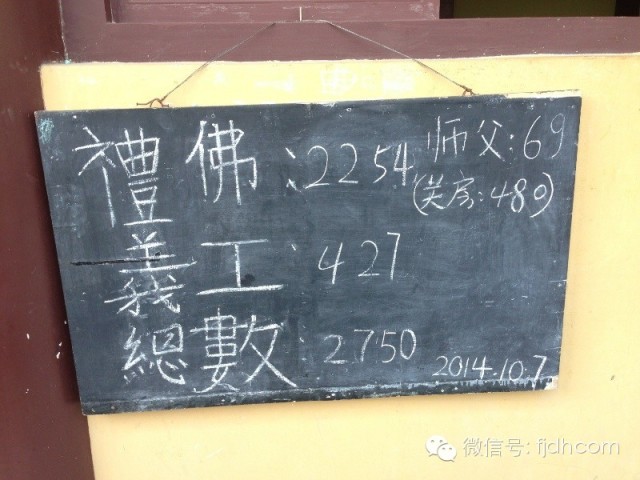 禮佛:2254 师父:69
(关房:480)
義工:427
總數:2750
2014.10.7
微信号: fjdhcom